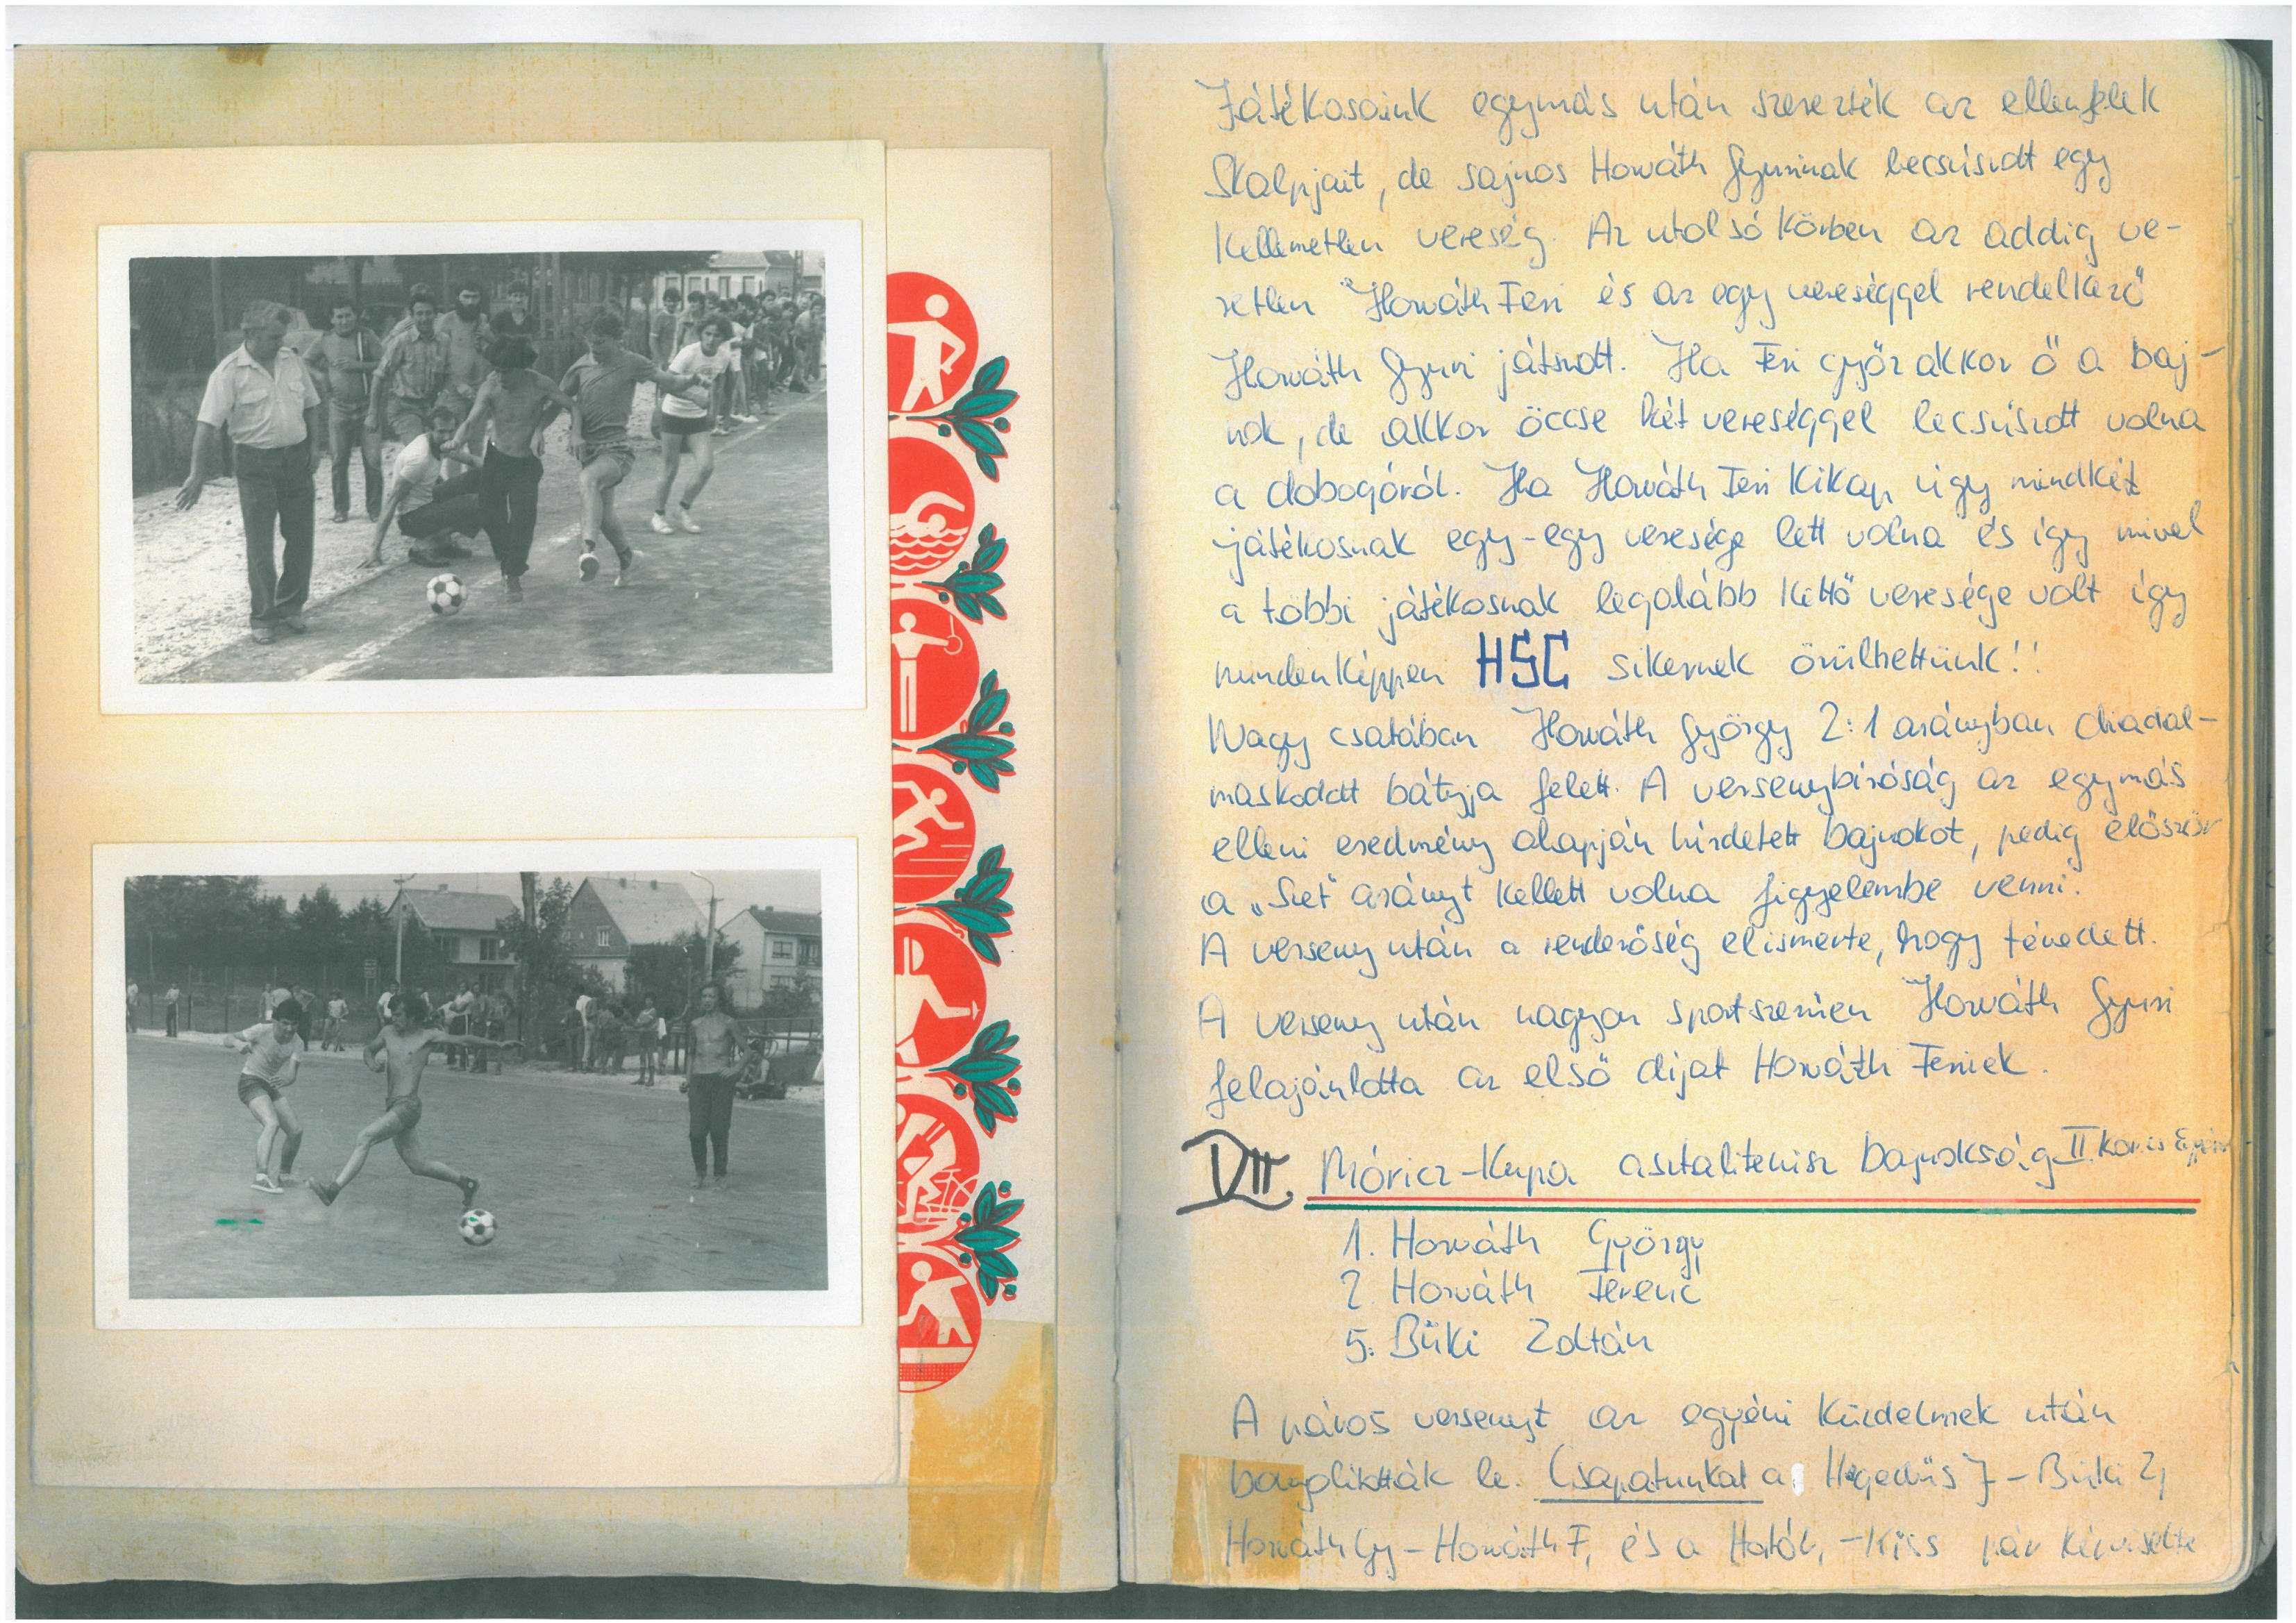 Játékosaink egymás után szerezték az ellenfelek
Skalpjait, de sajnos Horváth Gyurinak becsúszott egy
kellemetlen vereség. Az utolsó körben az addig ve-
retlen Horváth Feri és az egy vereséggel rendelkező
Horváth Gyuri játszott. Ha Feri győz akkor ő a baj-
nok, de akkor öccse két vereséggel lecsúszott volna
a dobogóról. Ha Horváth Feri kikap úgy mindkét
játékosnak egy-egy veresége lett volna és így mivel
a többi játékosnak legalább kettő veresége volt így
mindenképpen HSC sikernek örülhettünk!!
Nagy csatában Horváth György 2:1 arányban diadal-
maskodott bátyja felett. A versenybíróság az egymás
elleni eredmény alapján hirdetett bajnokot, pedig először
a „Szet" arányt kellett volna figyelembe venni.
A verseny után a rendezőség elismerte, hogy tévedett.
A verseny után nagyon sportszerűen Horváth Gyuri
felajánlotta az első díjat Horváth Ferinek.
Móricz-Kupa asztalitenisz bajnokság II. kor.cs
1. Horváth György
2. Horváth Ferenc
5. Büki Zoltán
A páros versenyt az egyéni küzdelmek után
bonyolították le. Csapatunkat a Hegedüs J - Büki Z,
Horváth Gy - Horváth F, és a - Kiss pár képviselte